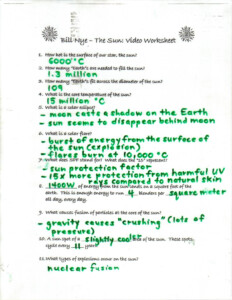 Bill Nye – The Sun: Video Worksheet
1. How hot is the surface of our star, the sun?
6000°C
2. How many "Earth's" are needed to fill the sun?
1.3 million
3. How many "Earth's" fit across the diameter of the sun?
109
4. What is the core temperature of the sun?
15 million °C
5. What is a solar eclipse?
- moon casts a shadow on the Earth
- sun seems to disappear behind moon
6. What is a solar flare?
- burst of energy from the surface
of the sun (explosion)
- flares burn at 10,000 °C
7. What does SPF stand for? What does the "15" represent?
- sun protection factor
- 15x more protection from harmful UV
rays compared to natural skin
8. 1400W of energy from the sun lands on a square foot of the
earth. This is enough energy to run 4 blenders per square meter
all day, every day.
9. What causes fusion of particles at the core of the sun?
- gravity causes "crushing" (lots of
pressure)
10. A sun spot is a slightly cooler area of the sun. These spots
cycle every 11 years
11. What types of explosions occur on the sun?
nuclear fusion